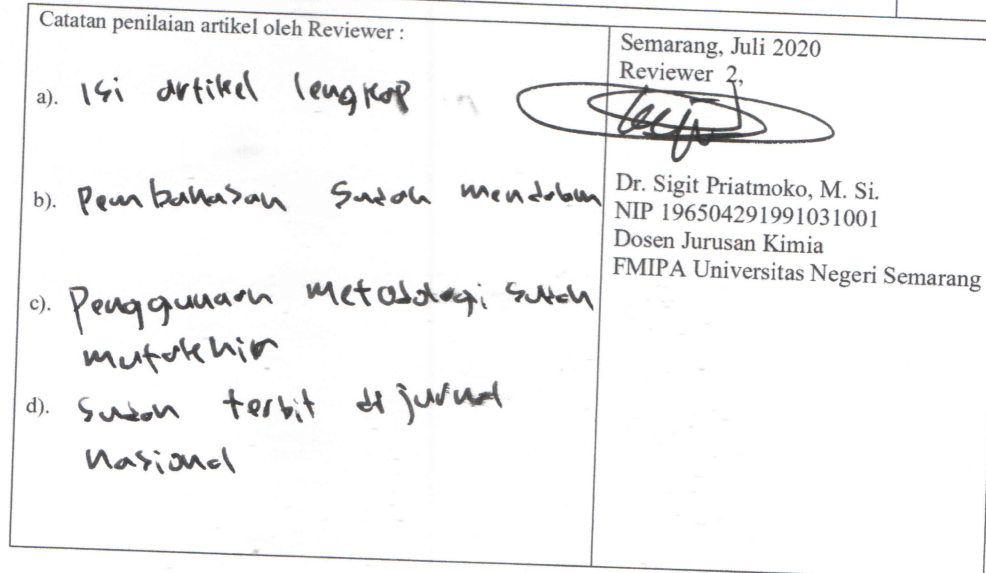 Catatan penilaian artikel oleh Reviewer :
a). Isi artikel lengkap
b). Pembahasan sudah mendalam
c). Penggunaan metodologi sudah
mutakhir
d). Sudah terbit di jurnal
nasional
Semarang, Juli 2020
Reviewer 2,
Dr. Sigit Priatmoko, M. Si.
NIP 196504291991031001
Dosen Jurusan Kimia
FMIPA Universitas Negeri Semarang